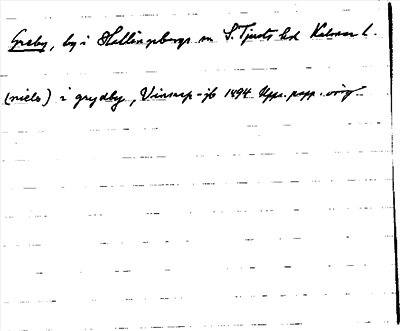 Gryby, by i Hallingebergs sn S. Tjusts hd Kalmar l.
(nielo) i grydby, Vinsarp-jb 1494 Upps. papp. orig.